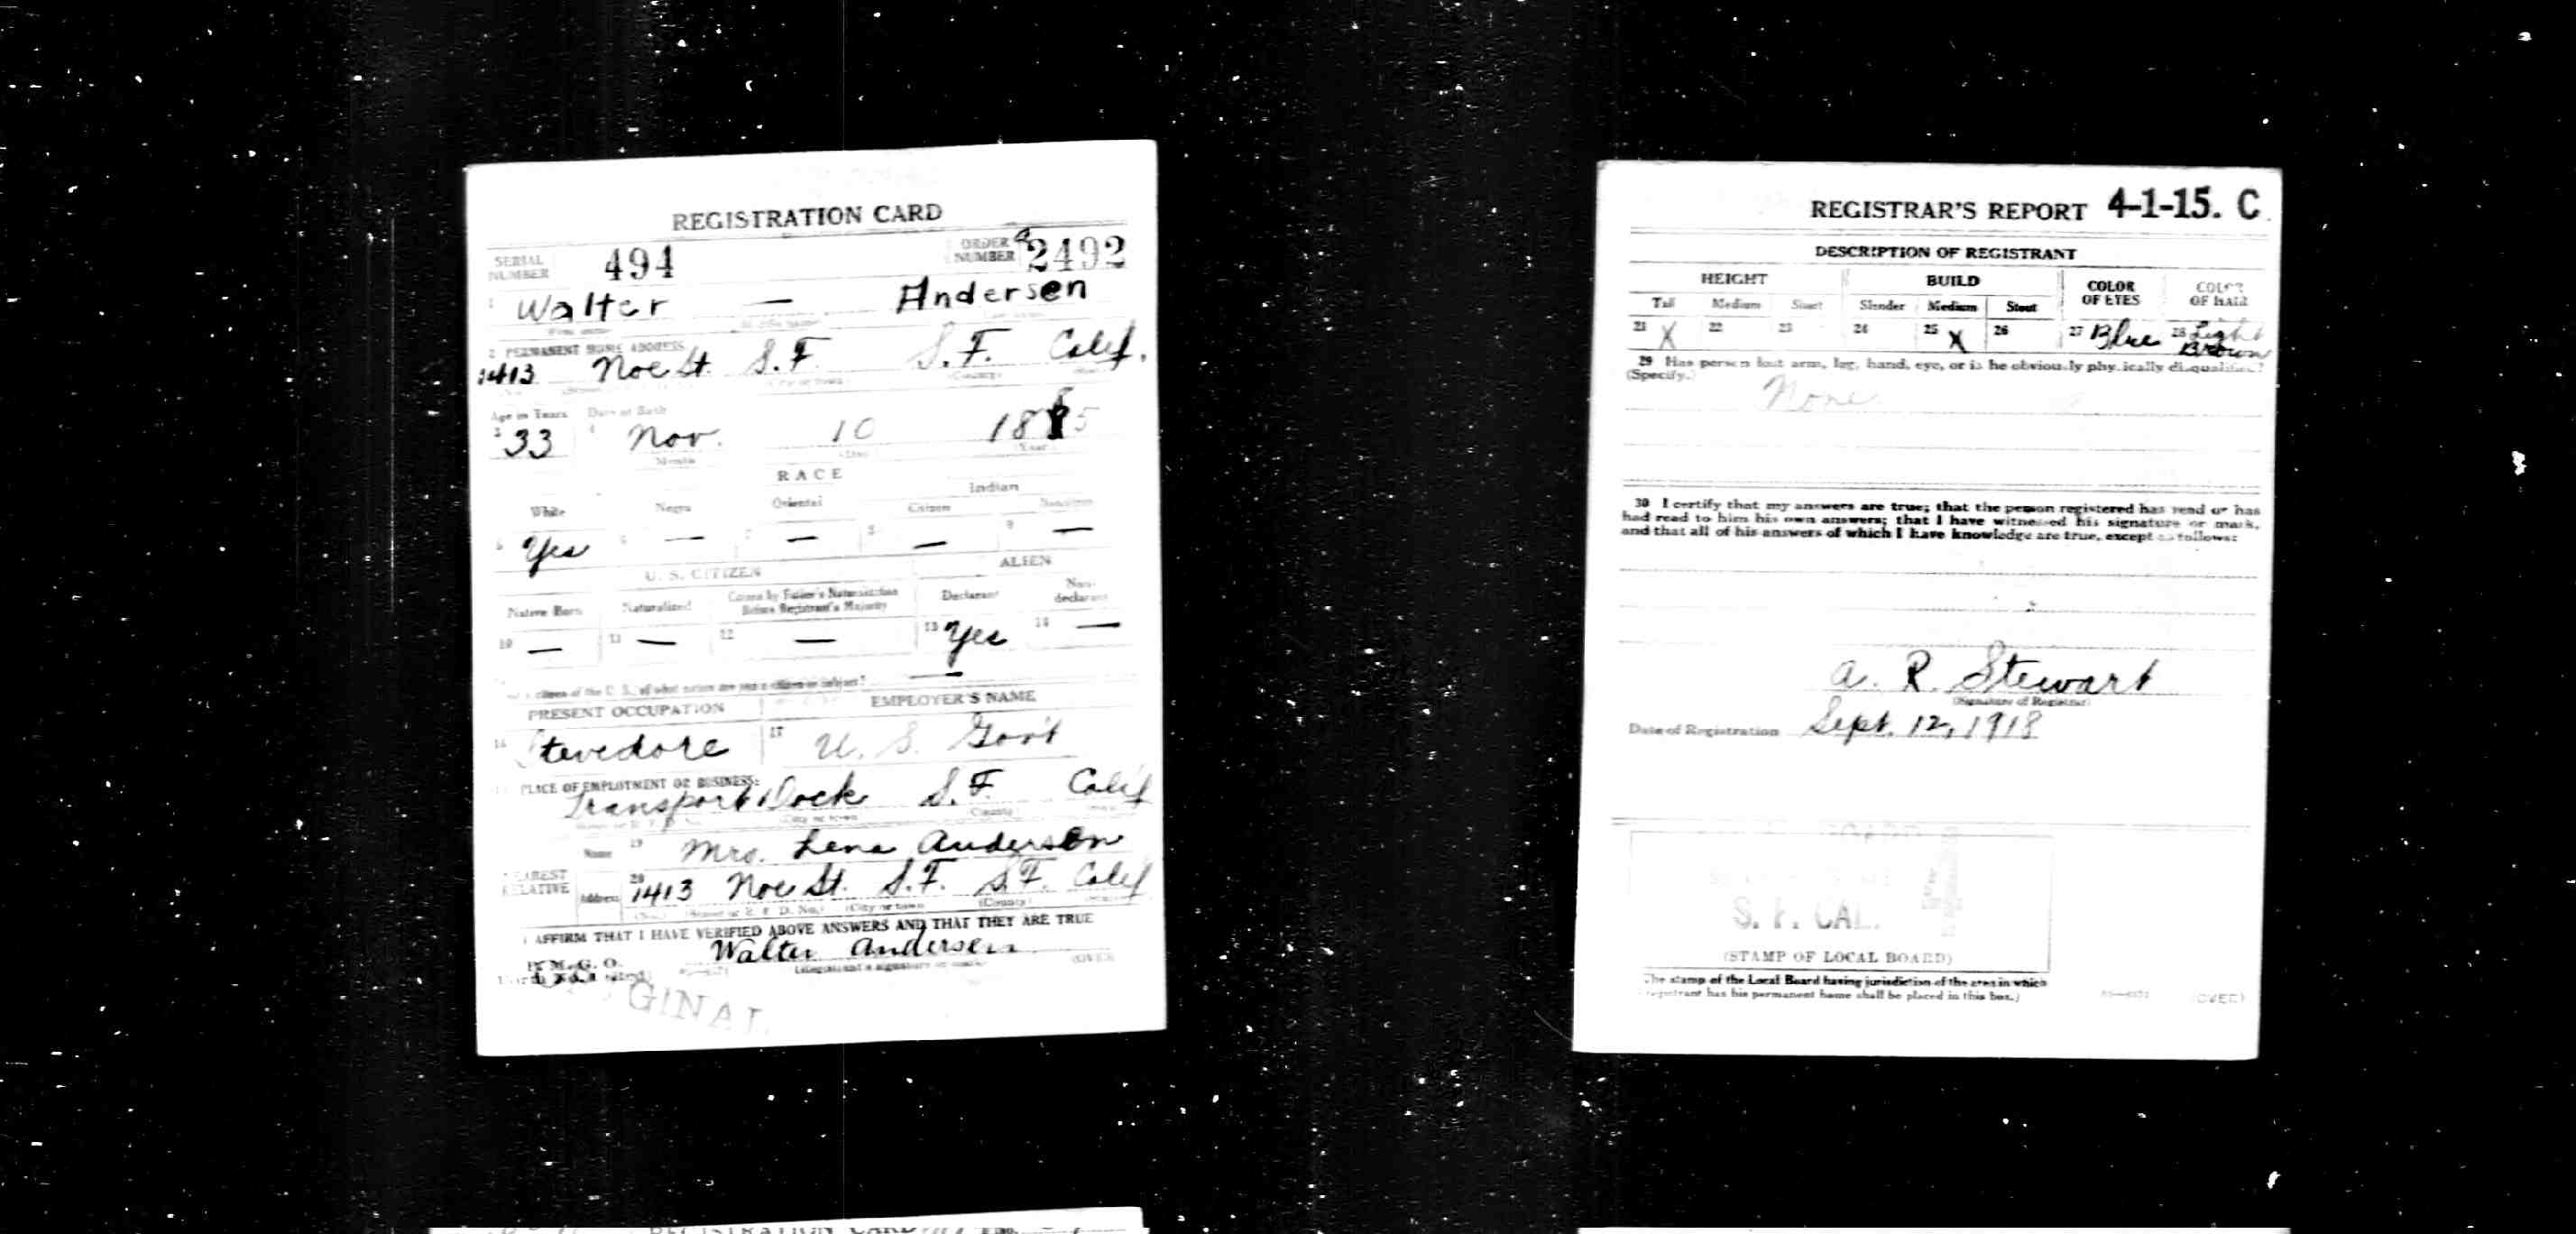 REGISTRATION CARD
SERIAL NUMBER 494 ORDER NUMBER 2492
1 Walter — Andersen
2 PERMANENT HOME ADDRESS
1413 Noe St. S.F. S.F. Calif.
Age in Years Date of Birth
3 33 4 Nov. 10 1885
Month Day Year
RACE
White Negro Oriental Indian
Citizen Noncitizen
Yes — 7 — 8 — 9 —
U. S. CITIZEN ALIEN
Native Born Naturalized Citizen by Father's Naturalization Before Registrant's Majority Declarant Non-declarant
10 — 11 — 12 — 13 Yes 14 —
citizen of the U. S., of what nation are you a citizen or subject? —
PRESENT OCCUPATION EMPLOYER'S NAME
16 Stevedore 17 U. S. Gov't
PLACE OF EMPLOYMENT OR BUSINESS:
Transport Dock S.F. Calif
(City or town) (County)
Name 19 Mrs. Lena Andersen
NEAREST RELATIVE
Address 20 1413 Noe St. S.F. S.F. Calif
(No.) (Street or R. F. D. No.) (City or town) (County)
I AFFIRM THAT I HAVE VERIFIED ABOVE ANSWERS AND THAT THEY ARE TRUE
P. M. G. O. Walter Andersen
(Registrant's signature or mark) (OVER)
GINAL
REGISTRAR'S REPORT 4-1-15. C
DESCRIPTION OF REGISTRANT
HEIGHT BUILD COLOR OF EYES COLOR OF HAIR
Tall Medium Short Slender Medium Stout
21 X 22 23 24 25 X 26 27 Blue 28 Light Brown
29 Has person lost arm, leg, hand, eye, or is he obviously physically disqualified?
(Specify.) None
30 I certify that my answers are true; that the person registered has read or has
had read to him his own answers; that I have witnessed his signature or mark,
and that all of his answers of which I have knowledge are true, except as follows:
A. R. Stewart
(Signature of Registrar)
Date of Registration Sept. 12, 1918
S. F. CAL.
(STAMP OF LOCAL BOARD)
The stamp of the Local Board having jurisdiction of the area in which
registrant has his permanent home shall be placed in this box.)
(OVER)
REGISTRATION CARD